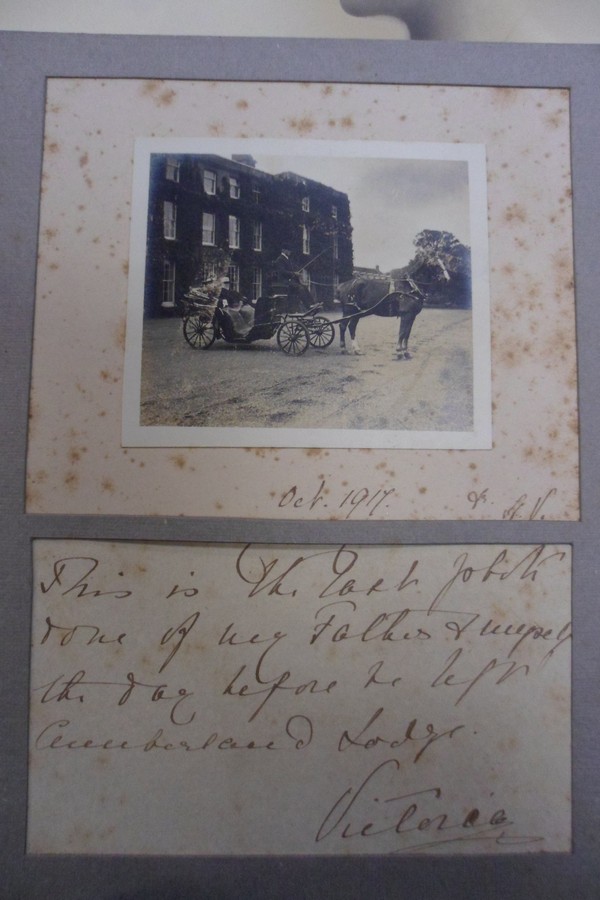 Oct. 1917. & H. V.
This is the last photo
done of my Father & myself
the day before he left
Cumberland Lodge.
Victoria